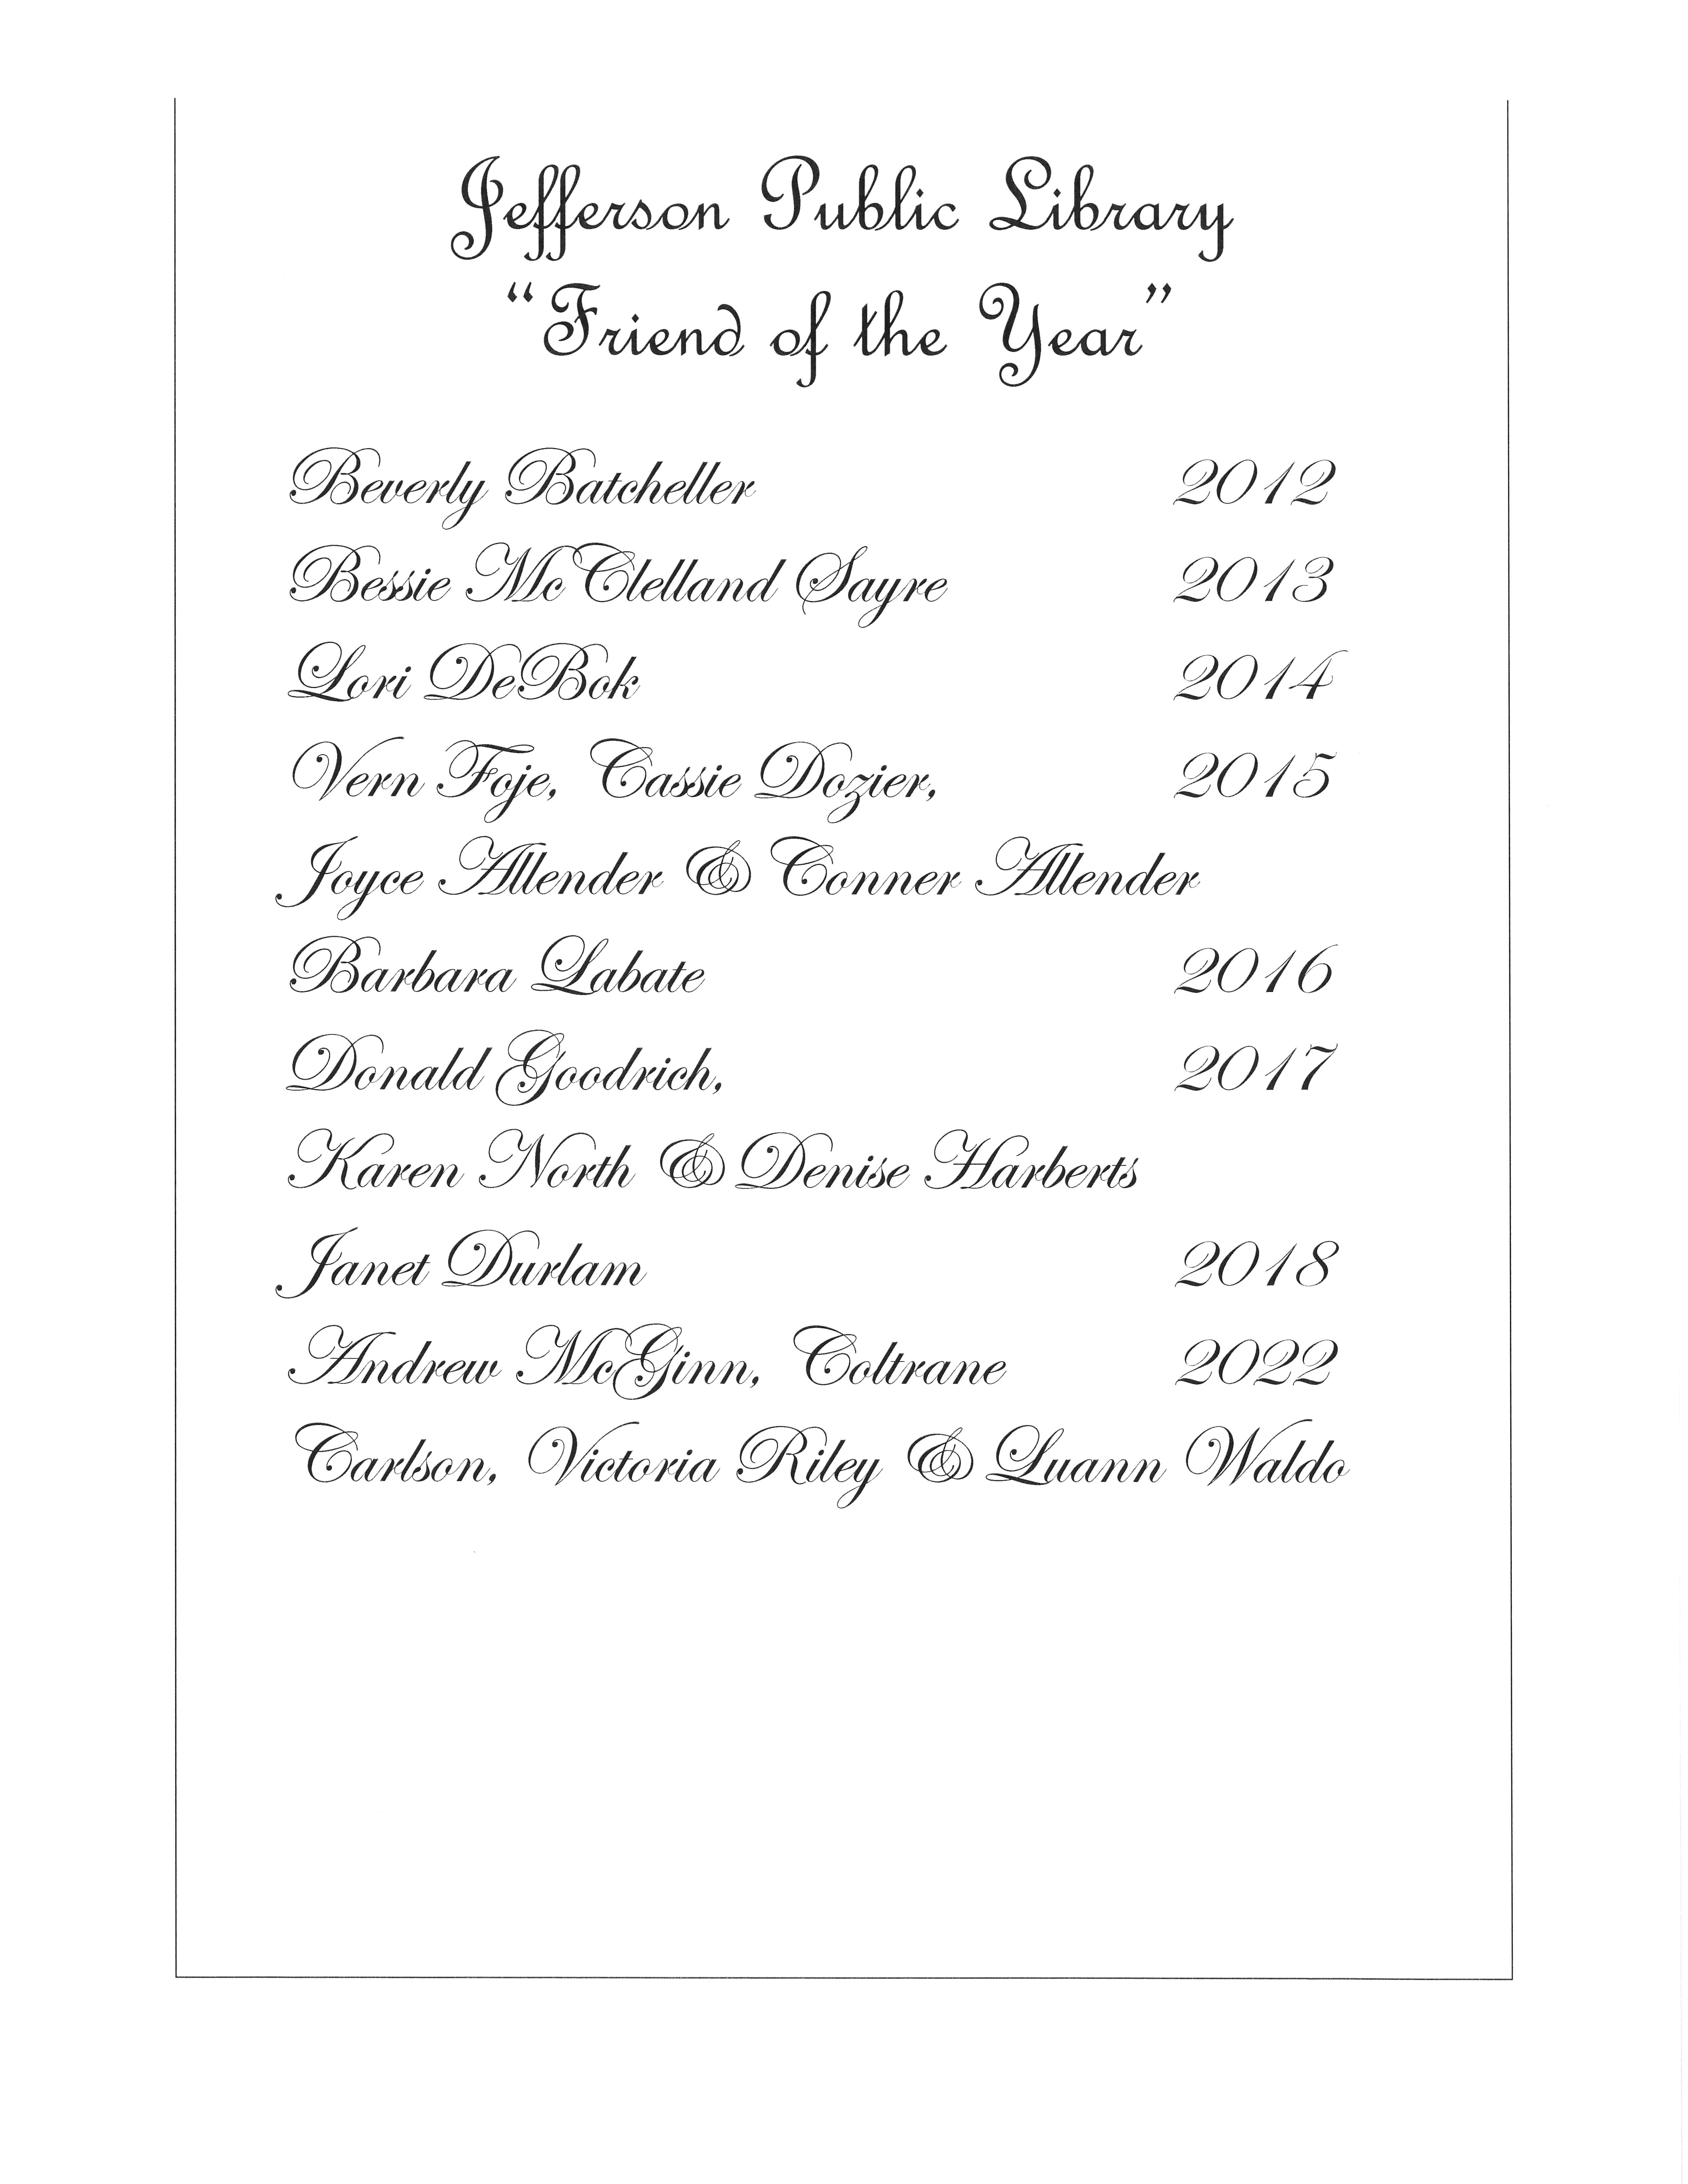 Jefferson Public Library
“Friend of the Year”
Beverly Batcheller 2012
Bessie McClelland Sayre 2013
Lori DeBok 2014
Vern Foje, Cassie Dozier, 2015
Joyce Allender & Conner Allender
Barbara Labate 2016
Donald Goodrich, 2017
Karen North & Denise Harberts
Janet Durlam 2018
Andrew McGinn, Coltrane 2022
Carlson, Victoria Riley & Luann Waldo